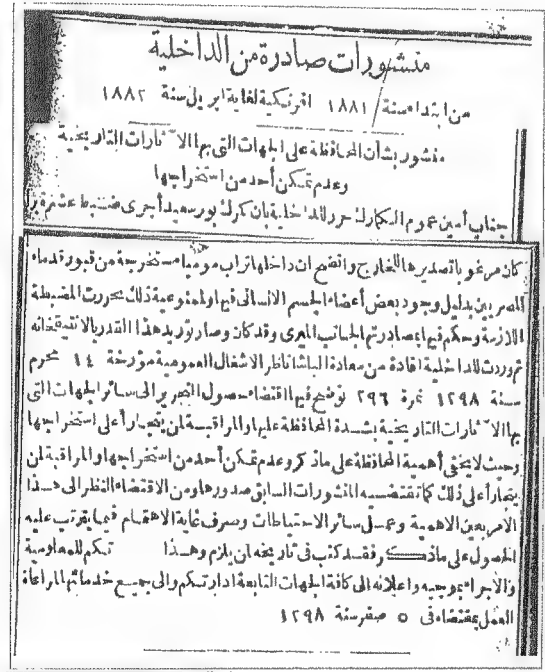 منشورات صادرة من الداخلية
من ابتداء سنة ١٨٨١ افرنكية لغاية ابريل سنة ١٨٨٢
منشور بشأن المحافظة على الجهات التى بها الآثارات التاريخية
وعدم تمكن أحد من استخراجها
جناب أمين عموم الكمارك حرر للداخلية بان كمرك بورسعيد أجرى ضبط عشرة
كان مرغوبا تصديرها للخارج واتضح ان داخلها تراب موميا مستخرجة من قبور قدماء
المصريين بدليل وجود بعض أعضاء الجسم الانسانى فيها ولممنوعية ذلك تحررت المضبطة
اللازمة وحكم فيها بمصادرتهم الجانب الميرى وقد كان وصار توريد هذا القدر بالانتيقخانه
ثم وردت للداخلية افادة من سعادة الباشا ناظر الاشغال العمومية مؤرخة ١٤ محرم
سنة ١٢٩٨ نمرة ٢٩٦ توضح فيها اقتضاء حصول التحرير الى سائر الجهات التى
بها الآثارات التاريخية بشدة المحافظة عليها والمراقبة لمن يتجارأ على استخراجها
وحيث لا يخفى أهمية المحافظة على ماذكر وعدم تمكن أحد من استخراجها والمراقبة لمن
يتجارأ على ذلك كما تقتضيه المنشورات السابق صدورها ومن الاقتضاء النظر الى هذا
الامر بعين الاهمية وعمل سائر الاحتياطات وصرف غاية الاهتمام فيما يترتب عليه
الحصول على ماذكر فقد كتب فى تاريخه ان يلزم وهذا لكم للمعلومية
والاجراء بموجبه واعلانه الى كافة الجهات التابعة ادارتكم والى جميع خدماتهم لمراعاة
العمل بمقتضاه فى ٥ صفر سنة ١٢٩٨